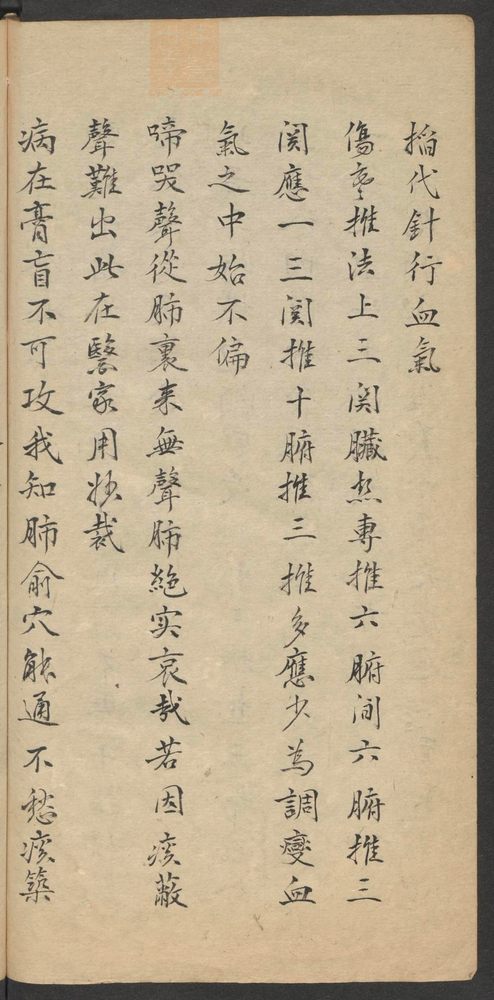 掐代針行血氣
傷寒推法上三関臟热專推六腑间六腑推三
関應一三関推十腑推三推多應少為調變血
氣之中始不偏
啼哭聲從肺裏来無聲肺絶实哀哉若因痰蔽
聲難出此在醫家用妙裁
病在膏肓不可攻我知肺俞穴能通不愁痰築